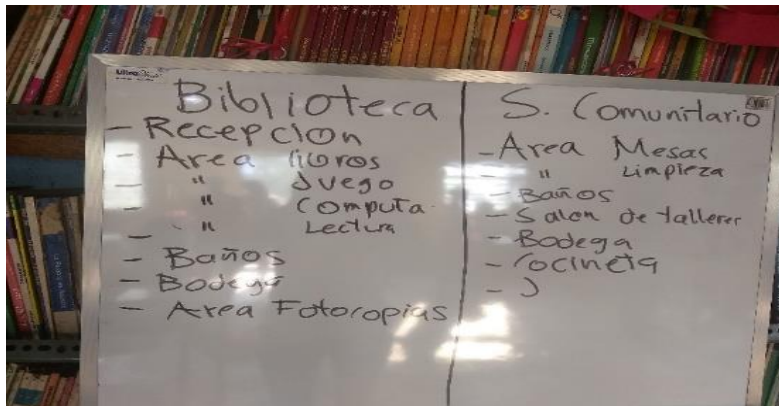 Biblioteca
- Recepcion
- Area libros
- " Juego
- " Computa.
- " Lectura
- Baños
- Bodega
- Area Fotocopias
S. Comunitario
- Area Mesas
- " Limpieza
- Baños
- Salon de talleres
- Bodega
- Cocineta
- J